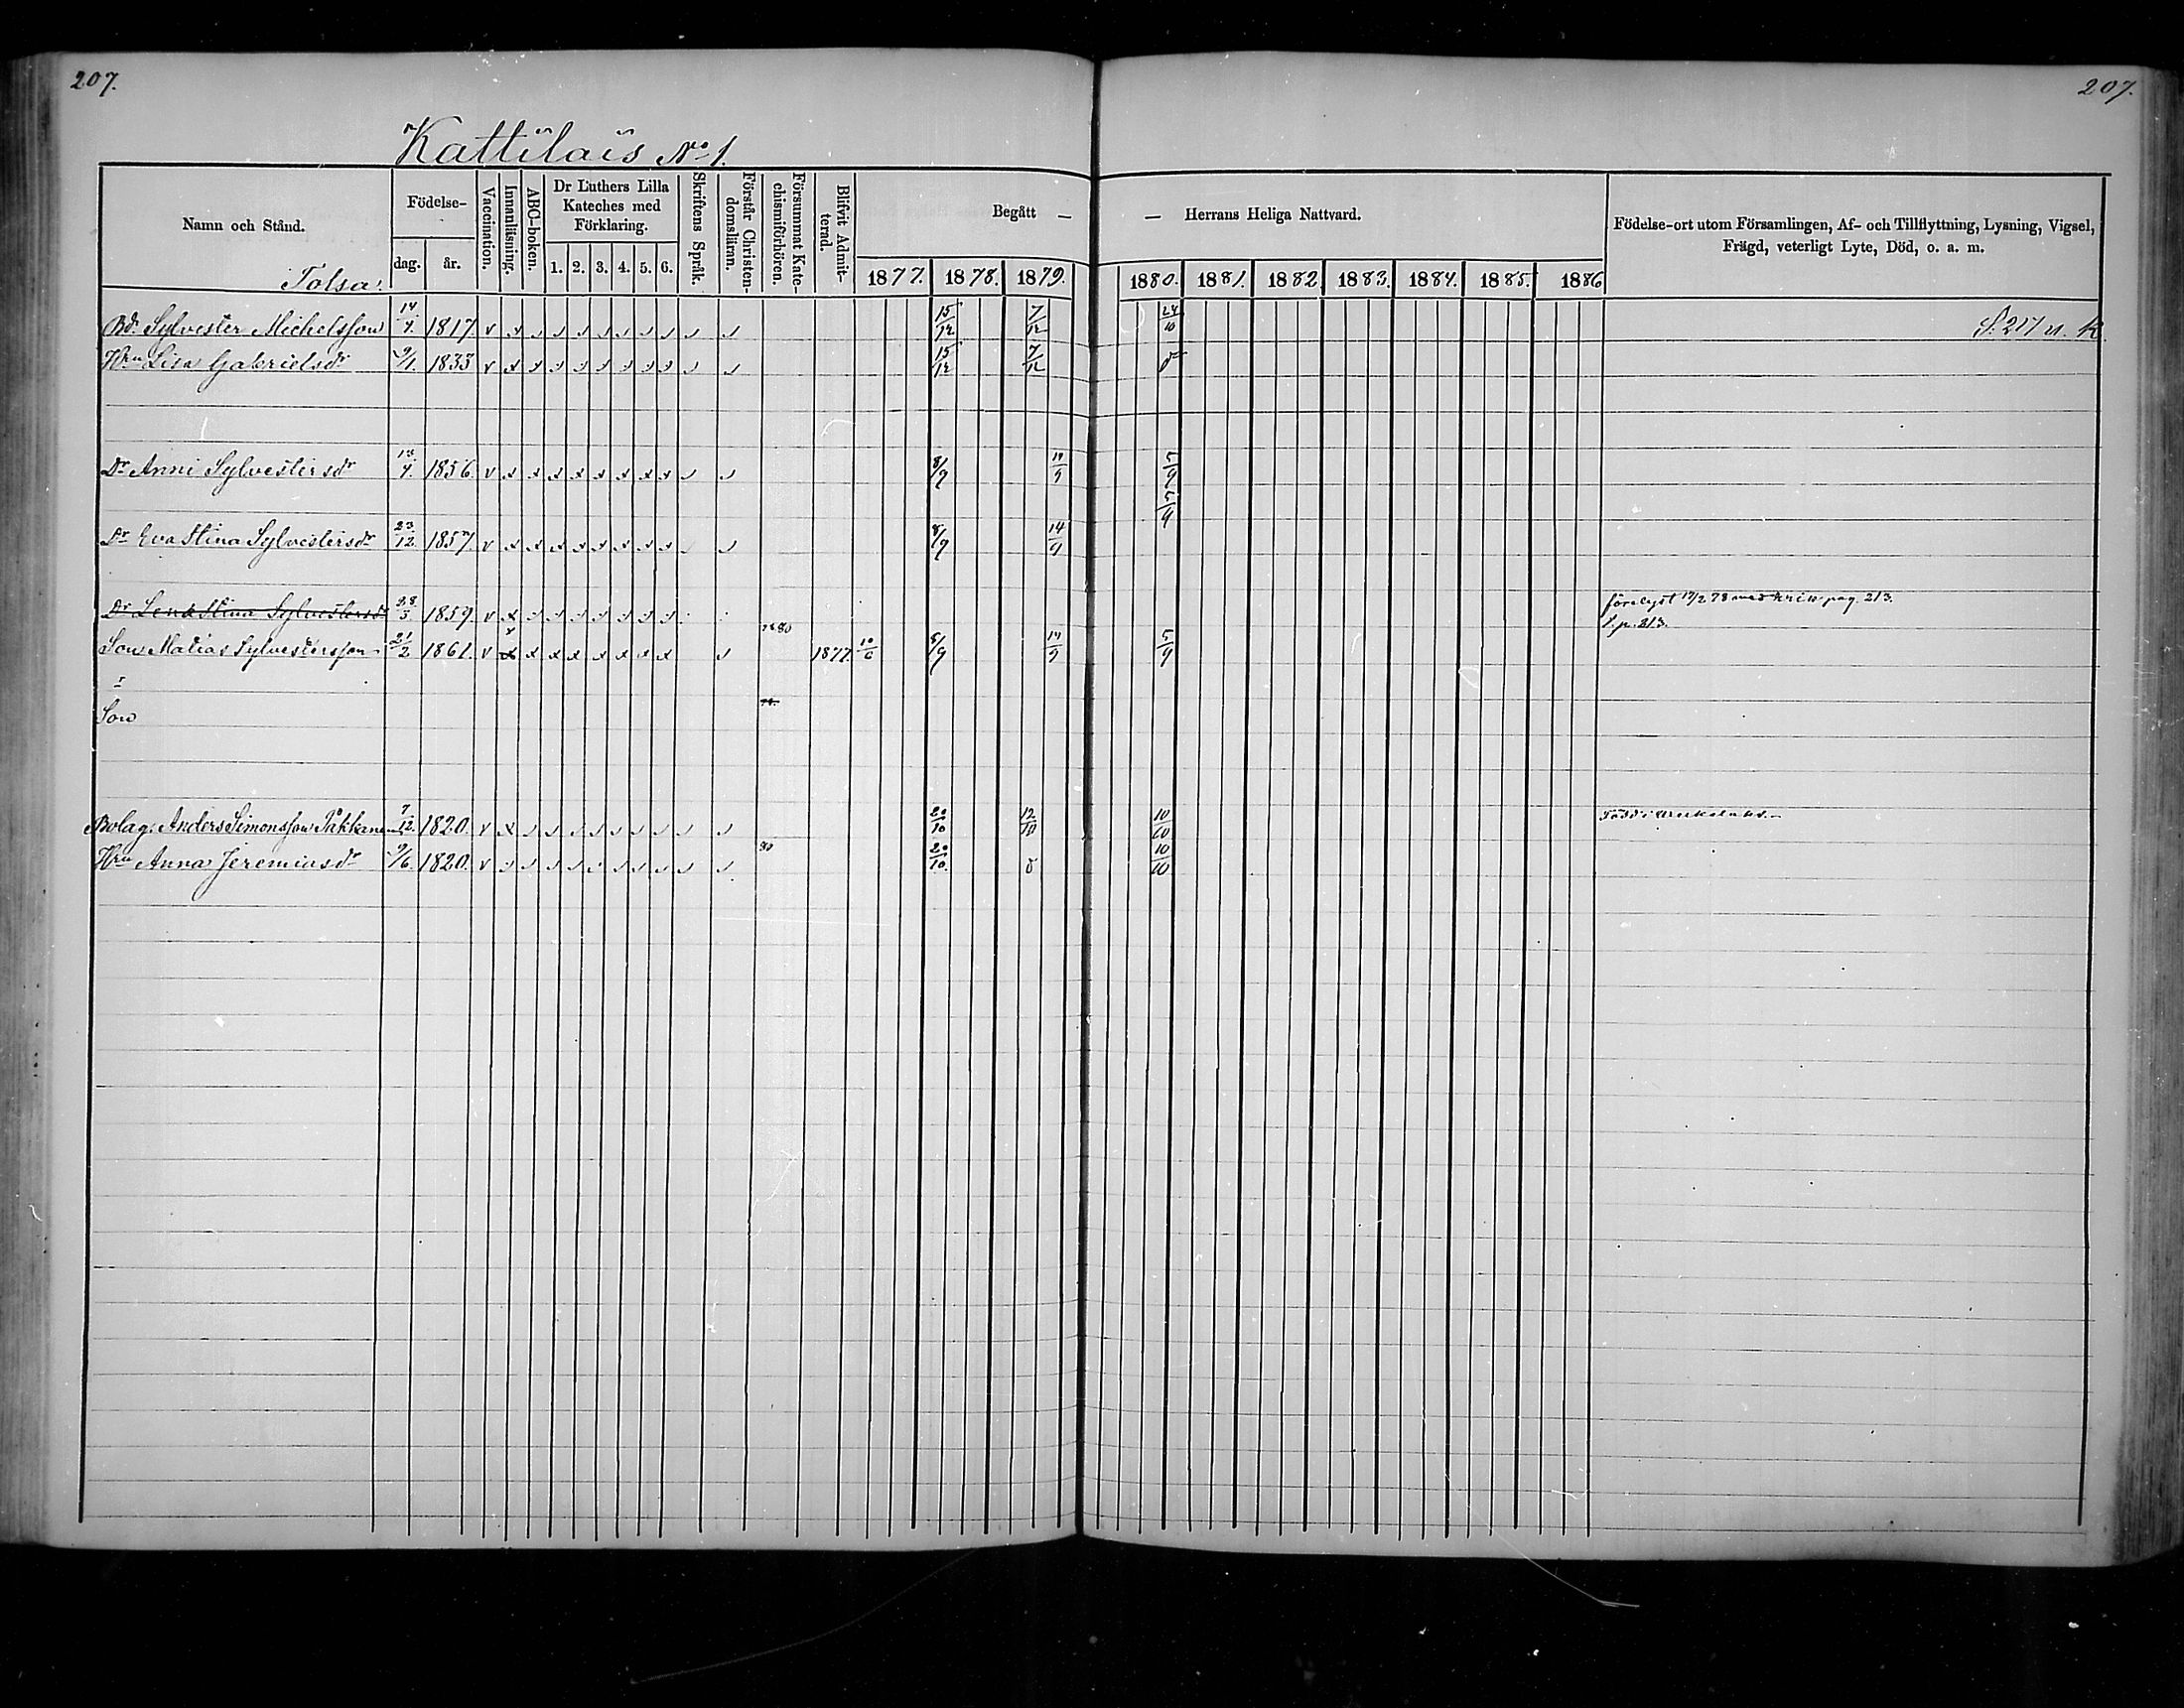 207.
207.
Kattilais No 1.
Namn och Stånd.
Födelse-
dag. år.
Vaccination.
Innanläsning.
ABC-boken.
Dr Luthers Lilla
Kateches med
Förklaring.
1. 2. 3. 4. 5. 6.
Skriftens Språk.
Förstår Christen-
domsläran.
Försummat Kate-
chismiförhören.
Blifvit Admit-
terad.
Begått — — Herrans Heliga Nattvard.
1877. 1878. 1879. 1880. 1881. 1882 1883. 1884. 1885. 1886
Födelse-ort utom Församlingen, Af- och Tillflyttning, Lysning, Vigsel,
Frägd, veterligt Lyte, Död, o. a. m.
Tolsa.
Bd. Sylvester Michelsson 14/7. 1817. 15/12 7/12 24/10 S. 217 n. k.
Hru Lisa Gabrielsdr 9/1. 1833 15/12 7/12
Dr Anni Sylvestersdr 1856. 8/9 5/9
5/9
Dr Eva Stina Sylvestersdr 23/12. 1857. 8/9 14/9
Dr Lena Stina Sylvestersdr 28/3 1859. pag. 213.
f. p. 213.
Son Matias Sylvestersson 21/2 1861. 1877. 10/6 8/9 5/9
Son
Bolag. Anders Simonsson 7/12. 1820. 20/10 12/10 10/10
80
Hru Anna Jeremiasdr 9/6. 1820. 20/10. 10/10